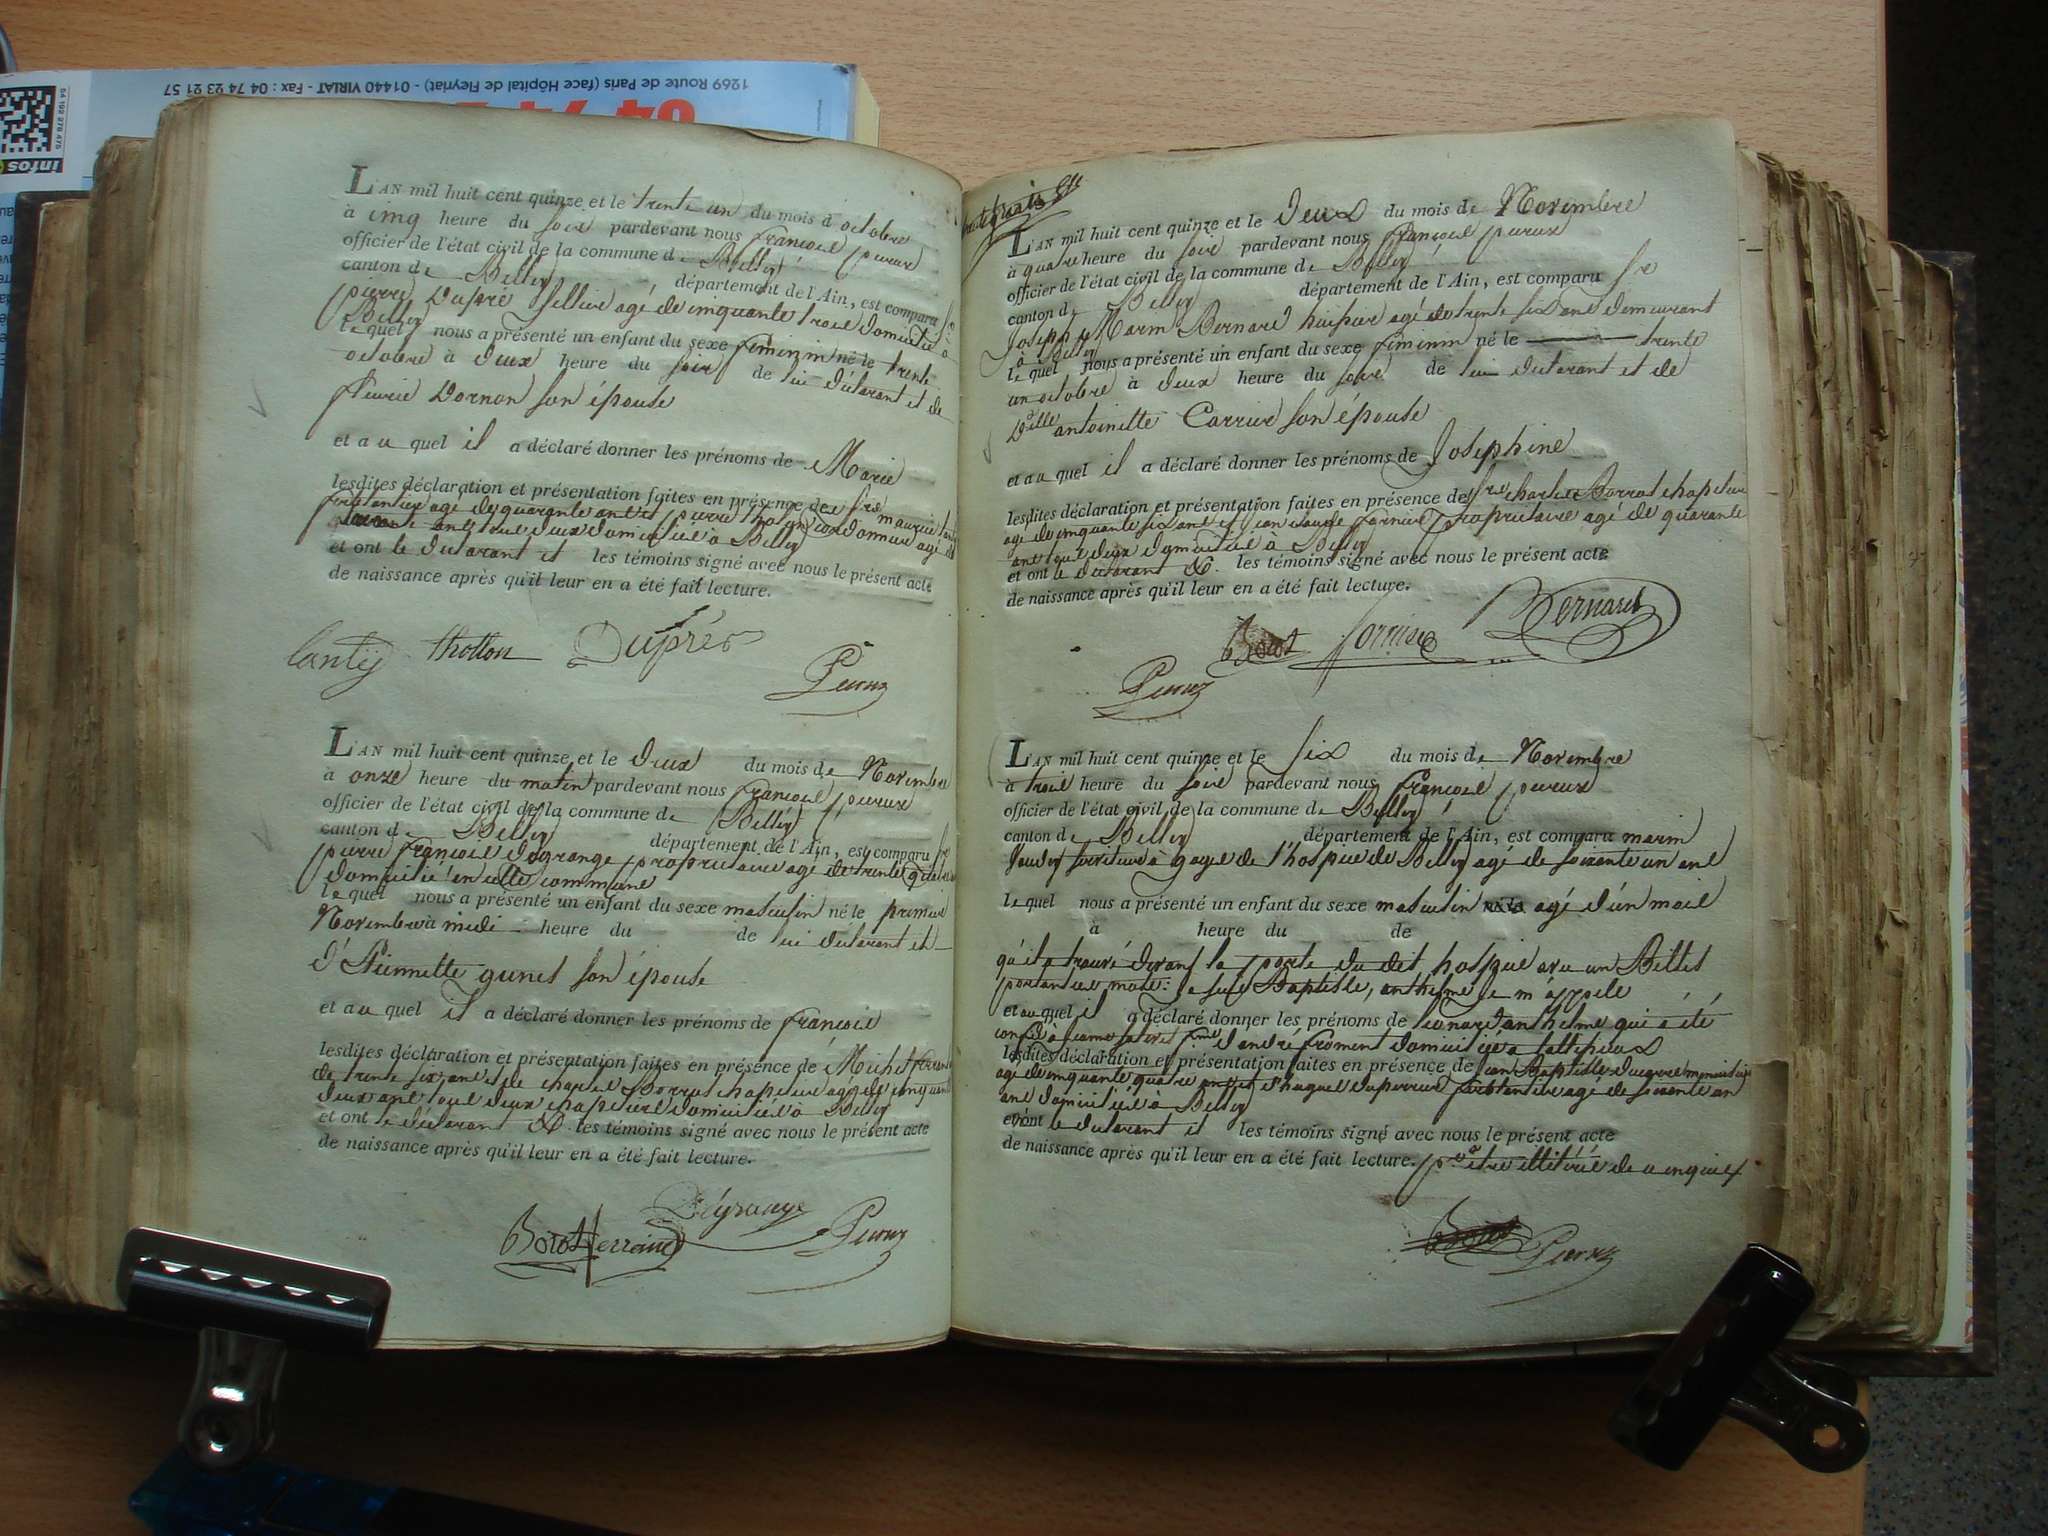 1269 Route de Paris (face Hôpital de Fleyriat) - 01440 VIRIAT - Fax : 04 74 23 21 57
infos
L'AN mil huit cent quinze et le trente un du mois d octobre
à cinq heure du soir pardevant nous françois peroux
officier de l'état civil de la commune de Belley
canton de Belley département de l'Ain, est comparu Sr
pierre Dupré sellier agé de cinquante trois domicilié à
Belley
lequel nous a présenté un enfant du sexe féminin né le trente
octobre à deux heure du soir de lui déclarant et de
fleurie Dornon son épouse
et au quel il a déclaré donner les prénoms de Marie
lesdites déclaration et présentation faites en présence de Sre maurice
agé de quarante ans et pierre cordonnier agé de
ans tous deux domiciliés à Belley
et ont le déclarant et les témoins signé avec nous le présent acte
de naissance après qu'il leur en a été fait lecture.
Lantij thollon Dupré
Peroux
L'AN mil huit cent quinze et le deux du mois de Novembre
à onze heure du matin pardevant nous françois peroux
officier de l'état civil de la commune de Belley
canton de Belley département de l'Ain, est comparu Sr
pierre françois degrange propriétaire agé de trente quatre
domicilié en cette commune
lequel nous a présenté un enfant du sexe masculin né le premier
Novembre à midi heure du de lui déclarant et
d'Etiennette gunet son épouse
et au quel il a déclaré donner les prénoms de françois
lesdites déclaration et présentation faites en présence de Michel
de trente six ans et de charles Borrot chapelier agé de cinquante
deux ans tous deux chapeliers domiciliés à Belley
et ont le déclarant & les témoins signé avec nous le présent acte
de naissance après qu'il leur en a été fait lecture.
Dégrange
Borot ferrand Peroux
L'AN mil huit cent quinze et le deux du mois de Novembre
à quatre heure du soir pardevant nous françois peroux
officier de l'état civil de la commune de Belley
canton de Belley département de l'Ain, est comparu Sre
Joseph Marin Bernard huissier agé de trente six ans demeurant
à Belley
lequel nous a présenté un enfant du sexe féminin né le trente
un octobre à deux heure du soir de lui déclarant et de
Dlle antoinette Carrier son épouse
et au quel il a déclaré donner les prénoms de Josephine
lesdites déclaration et présentation faites en présence de Sre charles Borrot chapelier
agé de cinquante six ans et jean claude fornier propriétaire agé de quarante
ans tous deux domiciliés à Belley
et ont le déclarant &. les témoins signé avec nous le présent acte
de naissance après qu'il leur en a été fait lecture.
Borot fornier Bernard
Peroux
L'AN mil huit cent quinze et le six du mois de Novembre
à trois heure du soir pardevant nous françois peroux
officier de l'état civil de la commune de Belley
canton de Belley département de l'Ain, est comparu marin
serviteur à gages de l'hospice de Belley agé de soixante un ans
lequel nous a présenté un enfant du sexe masculin agé d'un mois
à heure du de
qu'il a trouvé devant la porte du dit hospice avec un Billet
portant ces mots: je suis Baptisé, anthelme je m'appele
et au quel il a déclaré donner les prénoms de leonard anthelme qui a été
confié à fme d'andré froment domicilié à
lesdites déclaration et présentation faites en présence de jean Baptiste
agé de cinquante quatre ans et hugues duperreux agé de soixante un
ans domiciliés à Belley
et ont le déclarant et les témoins signé avec nous le présent acte
de naissance après qu'il leur en a été fait lecture. pr être illitéré de ce enquis
Borot Peroux